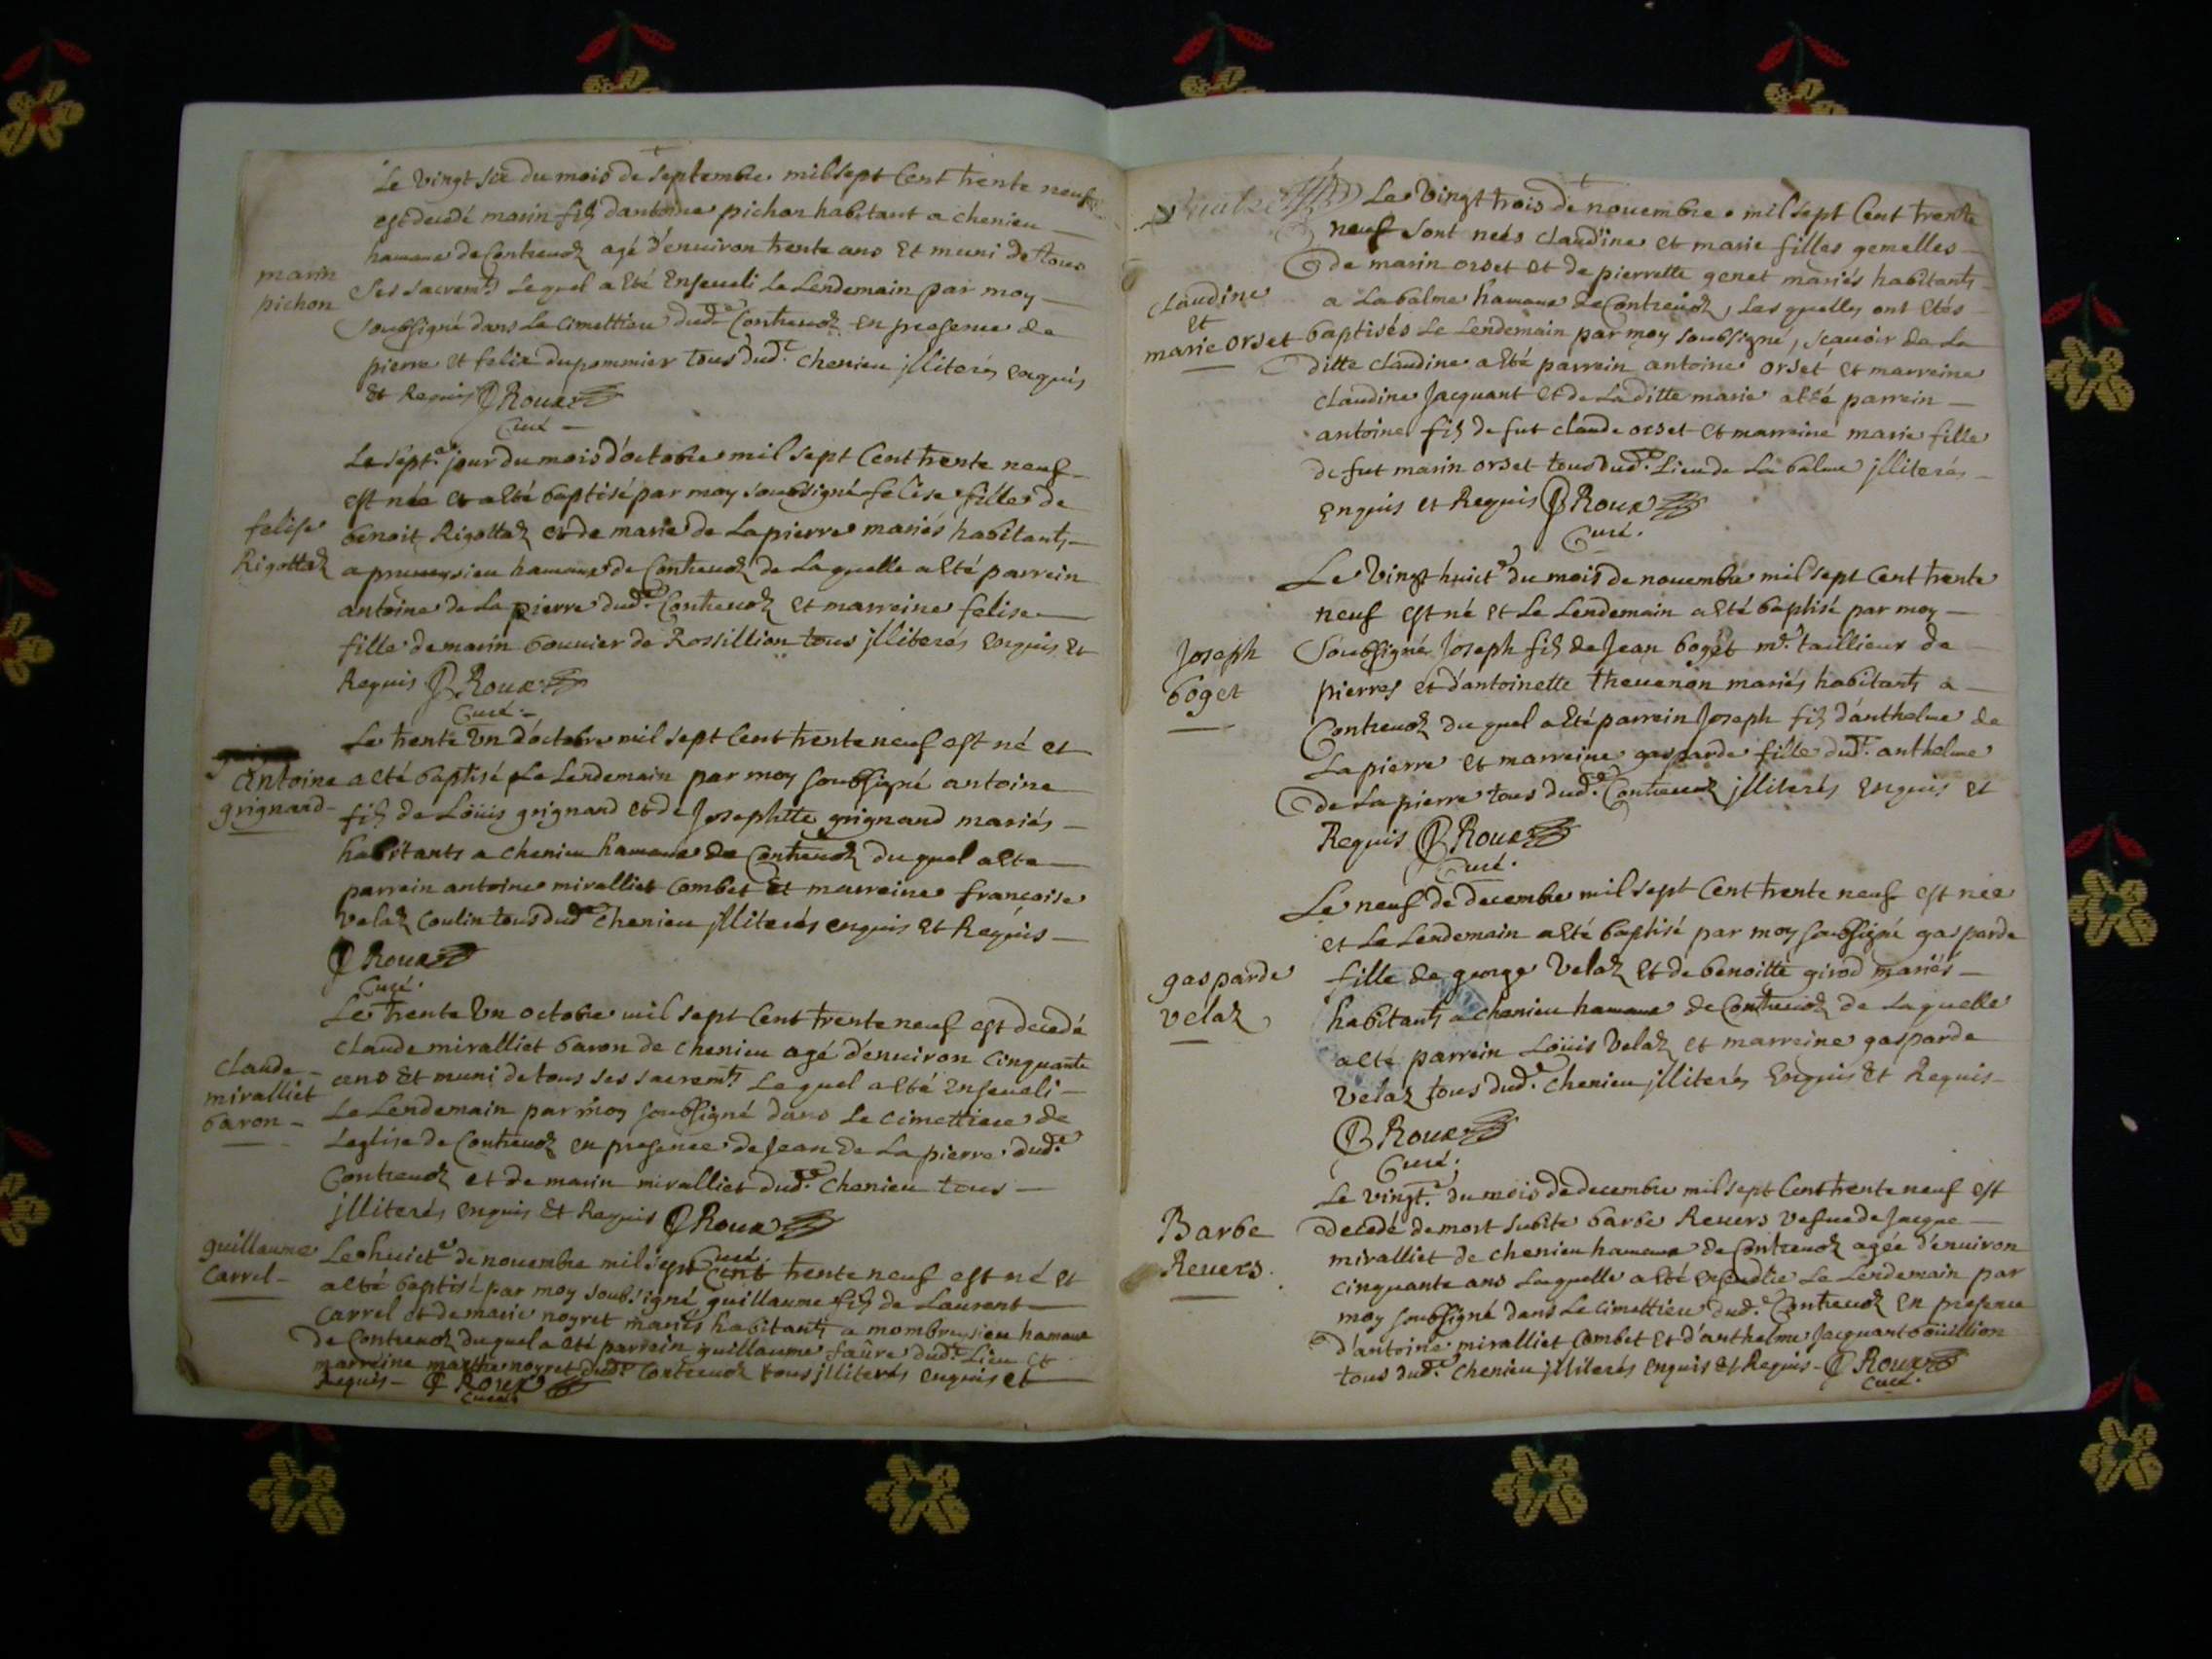 Le vingt six du mois de septembre mil sept Cent trente neuf
est decedé marin fils d'antoine pichon habitant a chenieu
hameau de Contrevoz agé d'environ trente ans et muni de tous
marin
pichon
ses sacremts lequel a été Enseveli le Lendemain par moy
soubsigné dans le cimettiere dudt Contrevoz en presence de
pierre et felix dupommier tous dudt chenieu jlliterés enquis
et Requis Roux
Curé
Le septe jour du mois d'octobre mil sept Cent trente neuf
est née et a été baptisé par moy soubsigné felise fille de
felise
Rigottaz
benoit Rigottaz et de marie de Lapierre mariés habitants
a prumeysieu hameau de Contrevoz de Laquelle a été parrein
antoine de La pierre dudt Contrevoz et marreine felise
fille de marin bouvier de Rossillion tous jlliterés enquis et
Requis Roux
Curé
Le trente un d'octobre mil sept Cent trente neuf est né et
antoine
grignard
a eté baptisé Le Lendemain par moy soubsigné antoine
fils de Loüis grignard et de Josephtte grignand mariés
habitants a chenieu hameau de Contrevoz du quel a ete
parrein antoine miralliet Combet et marreine francoise
velaz Coulin tous dudt chenieu jlliterés enquis et Requis
Roux
Curé.
Le trente un octobre mil sept Cent trente neuf est decedé
claude miralliet baron de chenieu agé d'environ cinquante
claude
miralliet
baron
ans et muni de tous ses sacremts Lequel a été Enseveli
Le Lendemain par moy soubsigné dans Le cimettiere de
L'eglise de Contrevoz en presence de Jean de La pierre dudt
Contrevoz et de marin miralliet dudt chenieu tous
jlliterés enquis et Requis Roux
Curé.
guillaume
Carrel
Le huicte de novembre mil sept Cent trente neuf est né et
a été baptisé par moy soubsigné guillaume fils de Laurent
Carrel et de marie noyret mariés habitants a mombreysieu hameau
de Contrevoz duquel a eté parrein guillaume faure dudt Lieu et
marreine marthe noyret dudt Contrevoz tous jlliterés enquis et
Requis Roux
Curé
Le vingt trois de novembre mil sept Cent trente
neuf sont neés claudine et marie filles gemelles
de marin orset et de pierrette genet mariés habitants
claudine
et
marie orset
a La balme hameau de Contrevoz, Lesquelles ont etés
baptisés Le Lendemain par moy soubsigné, scavoir de La
ditte claudine a été parrein antoine orset et marreine
claudine Jacquant et de La ditte marie a été parrein
antoine fils de fut claude orset et marreine marie fille
de fut marin orset tous dudt Lieu de La balme jlliterés
enquis et Requis Roux
Curé.
Le vingt huicte du mois de novembre mil sept Cent trente
neuf est né et Le Lendemain a été baptisé par moy
Joseph
boget
soubsigné Joseph fils de Jean boget me taillieur de
pierres et d'antoinette thevenon mariés habitants a
Contrevoz du quel a été parrein Joseph fils d'anthelme de
La pierre et marreine gasparde fille dudt anthelme
de La pierre tous dudt Contrevoz jlliterés enquis et
Requis Roux
Curé.
Le neuf de decembre mil sept Cent trente neuf est née
et Le Lendemain a été baptisé par moy soubsigné gasparde
gasparde
velaz
fille de george velaz et de benoitte girod mariés
habitants a chenieu hameau de Contrevoz de Laquelle
a eté parrein Loüis velaz et marreine gasparde
velaz tous dudt chenieu jlliterés enquis et Requis
Roux
Curé.
Le vingte du mois de decembre mil sept Cent trente neuf est
Barbe
Revers
decedé de mort subite barbe Revers vefve de Jacque
miralliet de chenieu hameau de Contrevoz agée d'environ
cinquante ans Laquelle a été ensevelie Le Lendemain par
moy soubsigné dans Le cimettiere dudt Contrevoz en presence
d'antoine miralliet Combet et d'anthelme Jacquant boüillion
tous dudt chenieu jlliterés enquis et Requis Roux
Curé.